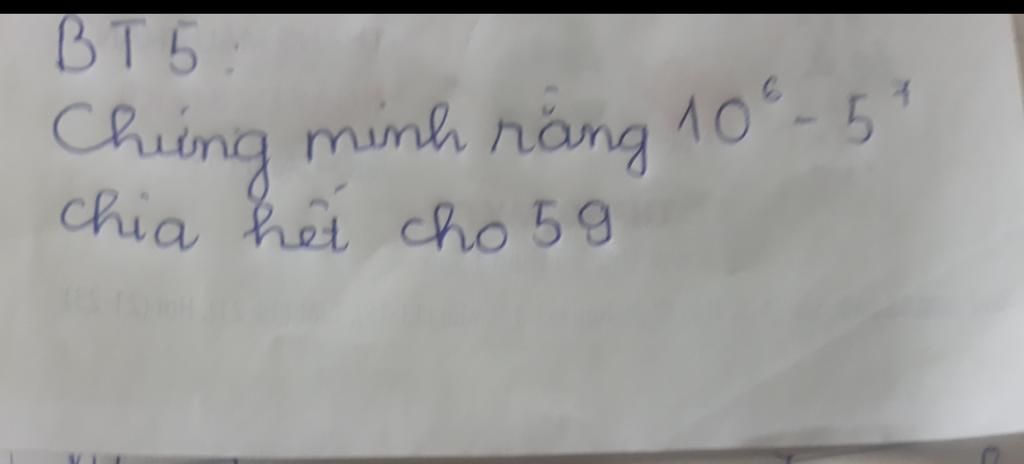 BT5:
Chứng minh rằng 10⁶ - 5⁷
chia hết cho 59